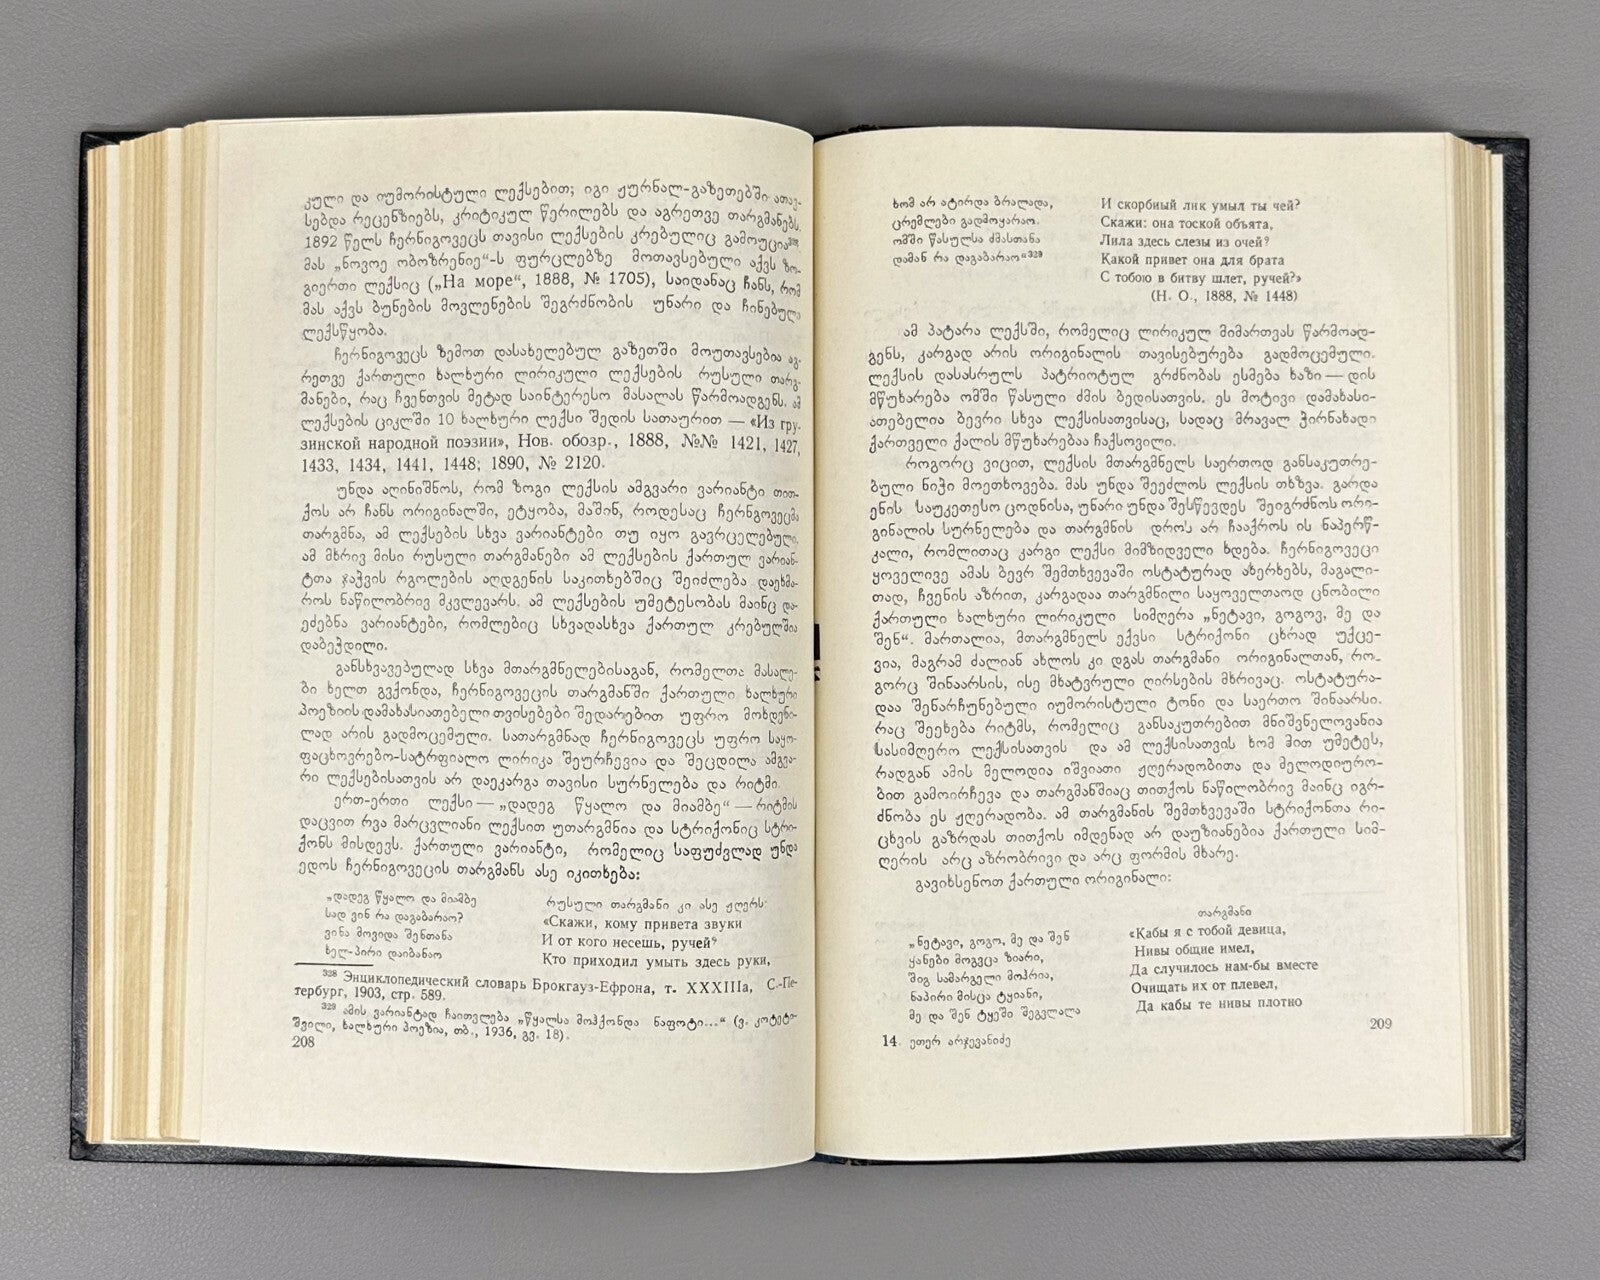 კული და იუმორისტული ლექსებით; იგი ჟურნალ-გაზეთებში ათავ-
სებდა რეცენზიებს, კრიტიკულ წერილებს და აგრეთვე თარგმანებს.
1892 წელს ჩერნიგოვეცს თავისი ლექსების კრებულიც გამოუცია³²⁸.
მას „ნოვოე ობოზრენიე“-ს ფურცლებზე მოთავსებული აქვს ზო-
გიერთი ლექსიც („На море“, 1888, № 1705), საიდანაც ჩანს, რომ
მას აქვს ბუნების მოვლენების შეგრძნობის უნარი და ჩინებული
ლექსწყობა.
ჩერნიგოვეცს ზემოთ დასახელებულ გაზეთში მოუთავსებია აგ-
რეთვე ქართული ხალხური ლირიკული ლექსების რუსული თარგ-
მანები, რაც ჩვენთვის მეტად საინტერესო მასალას წარმოადგენს. ამ
ლექსების ციკლში 10 ხალხური ლექსი შედის სათაურით — «Из гру-
зинской народной поэзии», Нов. обозр., 1888, №№ 1421, 1427,
1433, 1434, 1441, 1448; 1890, № 2120.
უნდა აღინიშნოს, რომ ზოგი ლექსის ამგვარი ვარიანტი თით-
ქოს არ ჩანს ორიგინალში, ეტყობა, მაშინ, როდესაც ჩერნგოვეცმა
თარგმნა, ამ ლექსების სხვა ვარიანტები თუ იყო გავრცელებული.
ამ მხრივ მისი რუსული თარგმანები ამ ლექსების ქართულ ვარიან-
ტთა ჯაჭვის რგოლების აღდგენის საკითხებშიც შეიძლება დაეხმა-
როს ნაწილობრივ მკვლევარს. ამ ლექსების უმეტესობას მაინც და-
ეძებნა ვარიანტები, რომლებიც სხვადასხვა ქართულ კრებულშია
დაბეჭდილი.
განსხვავებულად სხვა მთარგმნელებისაგან, რომელთა მასალე-
ბი ხელთ გვქონდა, ჩერნიგოვეცის თარგმანში ქართული ხალხური
პოეზიის დამახასიათებელი თვისებები შედარებით უფრო მოხდენი-
ლად არის გადმოცემული. სათარგმნად ჩერნიგოვეცს უფრო საყო-
ფაცხოვრებო-სატრფიალო ლირიკა შეურჩევია და შეცდილა ამგვა-
რი ლექსებისათვის არ დაეკარგა თავისი სურნელება და რიტმი.
ერთ-ერთი ლექსი — „დადეგ წყალო და მიამბე“ — რიტმის
დაცვით რვა მარცვლიანი ლექსით უთარგმნია და სტრიქონიც სტრი-
ქონს მისდევს. ქართული ვარიანტი, რომელიც საფუძვლად უნდა
ედოს ჩერნიგოვეცის თარგმანს ასე იკითხება:
„დადეგ წყალო და მიამბე
სად ვინ რა დაგაბარაო?
ვინა მოვიდა შენთანა
ხელ-პირი დაიბანაო
რუსული თარგმანი კი ასე ჟღერს:
«Скажи, кому привета звуки
И от кого несешь, ручей?
Кто приходил умыть здесь руки,
³²⁸ Энциклопедический словарь Брокгауз-Ефрона, т. XXXIIIa, С.-Пе-
тербург, 1903, стр. 589.
³²⁹ ამის ვარიანტად ჩაითვლება „წყალსა მოჰქონდა ნაფოტი...“ (ვ. კოტეტი-
შვილი, ხალხური პოეზია, თბ., 1936, გვ. 18).
208
ხომ არ ატირდა ბრალადა,
ცრემლები გადმოყარაო.
ომში წასულსა ძმასთანა
დამან რა დაგაბარაო“³²⁹
И скорбный лик умыл ты чей?
Скажи: она тоской объята,
Лила здесь слезы из очей?
Какой привет она для брата
С тобою в битву шлет, ручей?»
(Н. О., 1888, № 1448)
ამ პატარა ლექსში, რომელიც ლირიკულ მიმართვას წარმოად-
გენს, კარგად არის ორიგინალის თავისებურება გადმოცემული.
ლექსის დასასრულს პატრიოტულ გრძნობას ესმება ხაზი — დის
მწუხარება ომში წასული ძმის ბედისათვის. ეს მოტივი დამახასი-
ათებელია ბევრი სხვა ლექსისათვისაც, სადაც მრავალ ჭირნახადი
ქართველი ქალის მწუხარებაა ჩაქსოვილი.
როგორც ვიცით, ლექსის მთარგმნელს საერთოდ განსაკუთრე-
ბული ნიჭი მოეთხოვება. მას უნდა შეეძლოს ლექსის თხზვა. გარდა
ენის საუკეთესო ცოდნისა, უნარი უნდა შესწევდეს შეიგრძნოს ორი-
გინალის სურნელება და თარგმნის დროს არ ჩააქროს ის ნაპერწ-
კალი, რომლითაც კარგი ლექსი მიმზიდველი ხდება. ჩერნიგოვეცი
ყოველივე ამას ბევრ შემთხვევაში ოსტატურად ახერხებს, მაგალი-
თად, ჩვენის აზრით, კარგადაა თარგმნილი საყოველთაოდ ცნობილი
ქართული ხალხური ლირიკული სიმღერა „ნეტავი, გოგოვ, მე და
შენ“. მართალია, მთარგმნელს ექვსი სტრიქონი ცხრად უქცე-
ვია, მაგრამ ძალიან ახლოს კი დგას თარგმანი ორიგინალთან, რო-
გორც შინაარსის, ისე მხატვრული ღირსების მხრივაც. ოსტატურა-
დაა შენარჩუნებული იუმორისტული ტონი და საერთო შინაარსი.
რაც შეეხება რიტმს, რომელიც განსაკუთრებით მნიშვნელოვანია
სასიმღერო ლექსისათვის და ამ ლექსისათვის ხომ მით უმეტეს,
რადგან ამის მელოდია იშვიათი ჟღერადობითა და მელოდიურო-
ბით გამოირჩევა და თარგმანშიაც თითქოს ნაწილობრივ მაინც იგრ-
ძნობა ეს ჟღერადობა. ამ თარგმანის შემთხვევაში სტრიქონთა რი-
ცხვის გაზრდას თითქოს იმდენად არ დაუზიანებია ქართული სიმ-
ღერის არც აზრობრივი და არც ფორმის მხარე.
გავიხსენოთ ქართული ორიგინალი:
„ნეტავი, გოგო, მე და შენ
ყანები მოგვცა ზიარი,
შიგ სამარგელი მოჰრია,
ნაპირი მისცა ტყიანი,
მე და შენ ტყეში შეგვლალა
თარგმანი
«Кабы я с тобой девица,
Нивы общие имел,
Да случилось нам-бы вместе
Очищать их от плевел,
Да кабы те нивы плотно
209
14. ეთერ არჯევანიძე